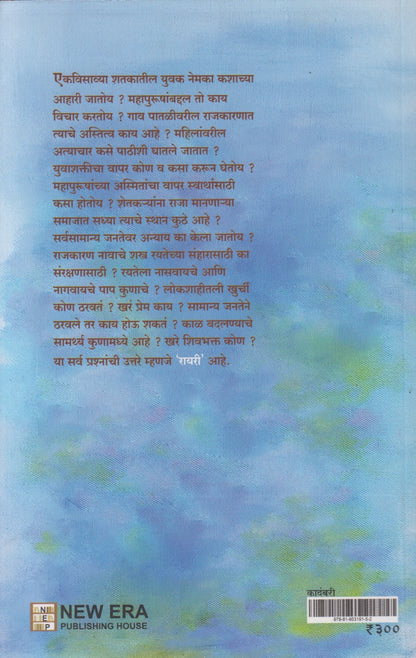 एकविसाव्या शतकातील युवक नेमका कशाच्या
आहारी जातोय ? महापुरुषांबद्दल तो काय
विचार करतोय ? गाव पातळीवरील राजकारणात
त्याचे अस्तित्व काय आहे ? महिलांवरील
अत्याचार कसे पाठीशी घातले जातात ?
युवाशक्तिचा वापर कोण व कसा करून घेतोय ?
महापुरूषांच्या अस्मितांचा वापर स्वार्थासाठी
कसा होतोय ? शेतकऱ्यांना राजा मानणाऱ्या
समाजात सध्या त्याचे स्थान कुठे आहे ?
सर्वसामान्य जनतेवर अन्याय का केला जातोय ?
राजकारण नावाचे शस्त्र रयतेच्या संहारासाठी का
संरक्षणासाठी ? रयतेला नासवायचे आणि
नागवायचे पाप कुणाचे ? लोकशाहीतली खुर्ची
कोण ठरवतं ? खरं प्रेम काय ? सामान्य जनतेन
ठरवले तर काय होऊ शकतं ? काळ बदलण्याचे
सामर्थ्य कुणामध्ये आहे ? खरे शिवभक्त कोण ?
या सर्व प्रश्नांची उत्तरे म्हणजे 'रायरी' आहे.
NEP
NEW ERA
PUBLISHING HOUSE
कादंबरी
₹३००